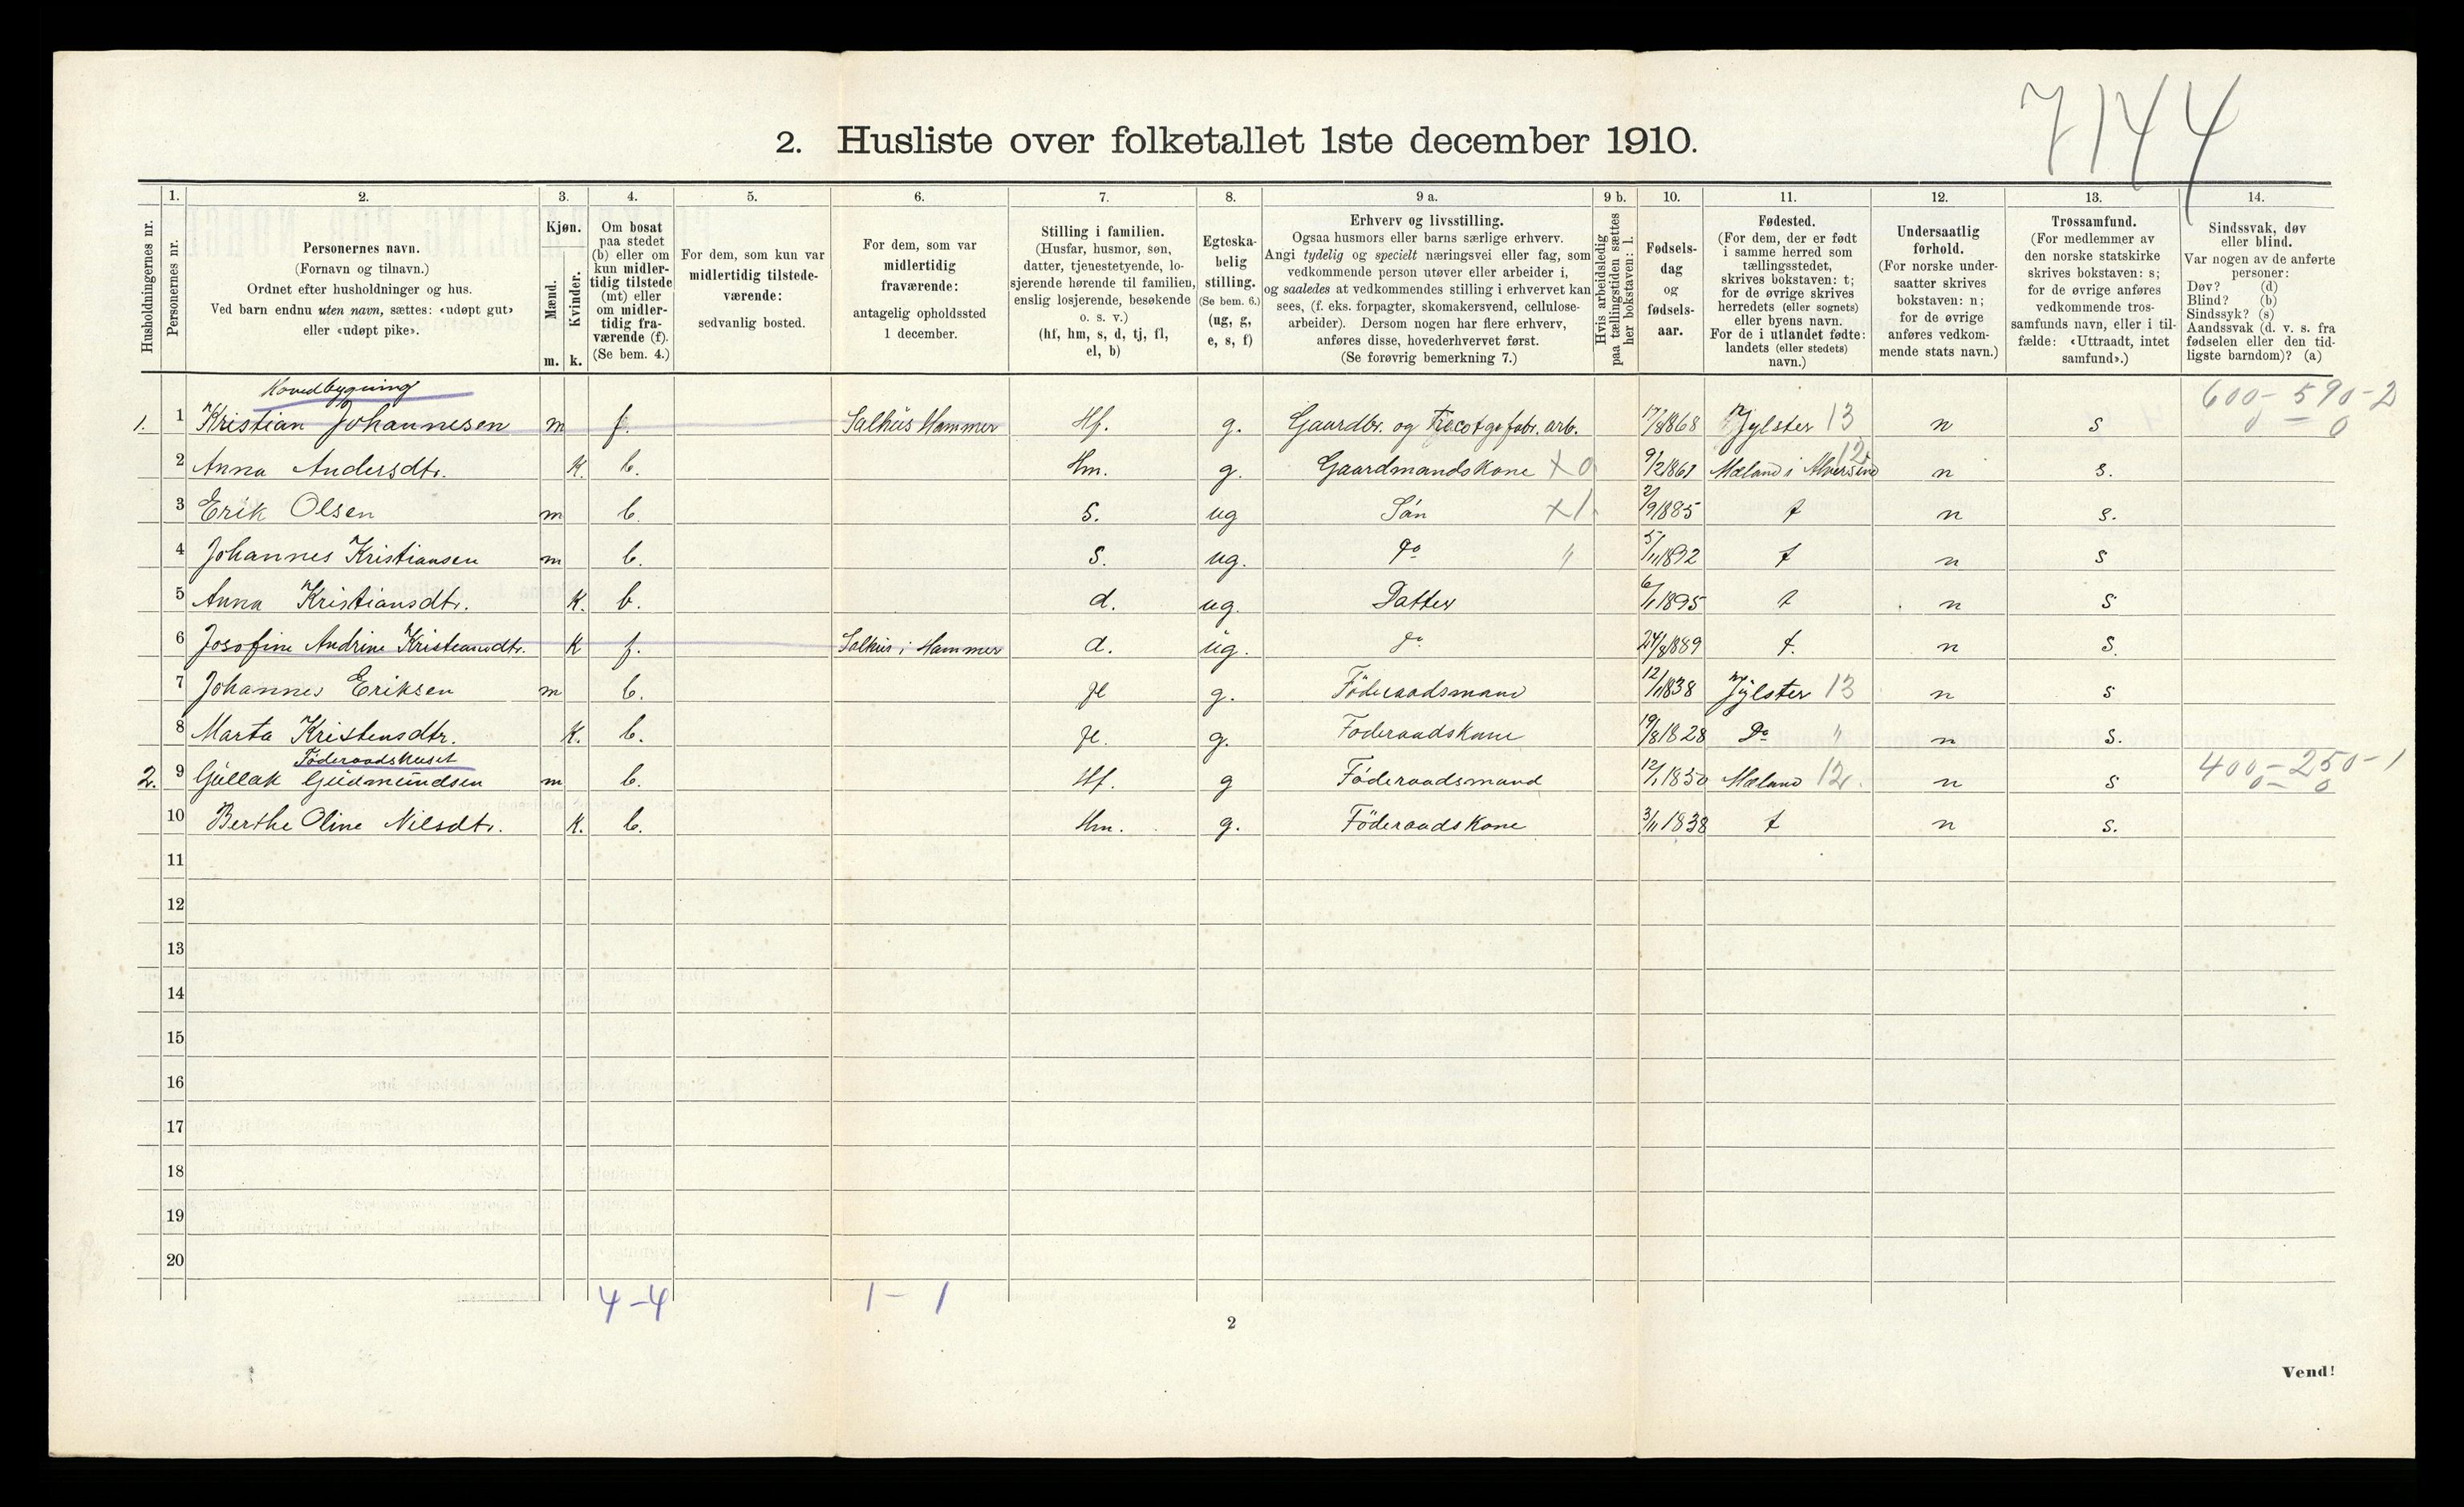 7144
2. Husliste over folketallet 1ste december 1910.
Husholdningernes nr.
1.
Personernes nr.
2.
Personernes navn.
(Fornavn og tilnavn.)
Ordnet efter husholdninger og hus.
Ved barn endnu uten navn, sættes: «udøpt gut»
eller «udøpt pike».
3.
Kjøn.
Mænd.
m.
Kvinder.
k.
4.
Om bosat
paa stedet
(b) eller om
kun midler-
tidig tilstede
(mt) eller
om midler-
tidig fra-
værende (f).
(Se bem. 4.)
5.
For dem, som kun var
midlertidig tilstede-
værende:
sedvanlig bosted.
6.
For dem, som var
midlertidig
fraværende:
antagelig opholdssted
1 december.
7.
Stilling i familien.
(Husfar, husmor, søn,
datter, tjenestetyende, lo-
sjerende hørende til familien,
enslig losjerende, besøkende
o. s. v.)
(hf, hm, s, d, tj, fl,
el, b)
8.
Egteska-
belig
stilling.
(Se bem. 6.)
(ug, g,
e, s, f)
9 a.
Erhverv og livsstilling.
Ogsaa husmors eller barns særlige erhverv.
Angi tydelig og specielt næringsvei eller fag, som
vedkommende person utøver eller arbeider i,
og saaledes at vedkommendes stilling i erhvervet kan
sees, (f. eks. forpagter, skomakersvend, cellulose-
arbeider). Dersom nogen har flere erhverv,
anføres disse, hovederhvervet først.
(Se forøvrig bemerkning 7.)
9 b.
Hvis arbeidsledig
paa tællingstiden sættes
her bokstaven: l.
10.
Fødsels-
dag
og
fødsels-
aar.
11.
Fødested.
(For dem, der er født
i samme herred som
tællingsstedet,
skrives bokstaven: t;
for de øvrige skrives
herredets (eller sognets)
eller byens navn.
For de i utlandet fødte:
landets (eller stedets)
navn.)
12.
Undersaatlig
forhold.
(For norske under-
saatter skrives
bokstaven: n;
for de øvrige
anføres vedkom-
mende stats navn.)
13.
Trossamfund.
(For medlemmer av
den norske statskirke
skrives bokstaven: s;
for de øvrige anføres
vedkommende tros-
samfunds navn, eller i til-
fælde: «Uttraadt, intet
samfund».)
14.
Sindssvak, døv
eller blind.
Var nogen av de anførte
personer:
Døv? (d)
Blind? (b)
Sindssyk? (s)
Aandssvak (d. v. s. fra
fødselen eller den tid-
ligste barndom)? (a)
Hovedbygning
600 - 590 - 2
0 - 0
1. 1 Kristian Johannesen m f. Salhus Hammer Hf. g. Gaardbr. og Trecotgefabr. arb. 17/8 1868 Jylster 13 n s
2 Anna Andersdtr. K. b. Hm. g. Gaardmandskone x 0 9/2 1861 Mæland i Alversund 12 n s.
3 Erik Olsen m b. S. ug Sön x 1 2/9 1885 t n s.
4 Johannes Kristiansen m b. S. ug. do " 5/11 1892 t n s
5 Anna Kristiansdtr. K. b. d. ug. Datter 6/1 1895 t n s
6 Josofine Andrine Kristiansdtr. K f. Salhus i Hammer d. ug. do 24/8 1889 t. n s.
7 Johannes Eriksen m b. fl g. Föderaadsmand 12/1 1838 Jylster 13 n s
8 Marta Kristensdtr. K. b. fl. g. Föderaadskone 19/8 1828 Do " n s.
Föderaadshuset
400 - 250 - 1
0 - 0
2. 9 Gullak Gudmundsen m b. Hf. g Föderaadsmand 12/1 1850 Mæland 12 n s
10 Berthe Oline Nilsdtr. K. b. Hm. g. Föderaadskone 3/11 1838 t n s.
11
12
13
14
15
16
17
18
19
20
4 - 4
1 - 1
2
Vend!